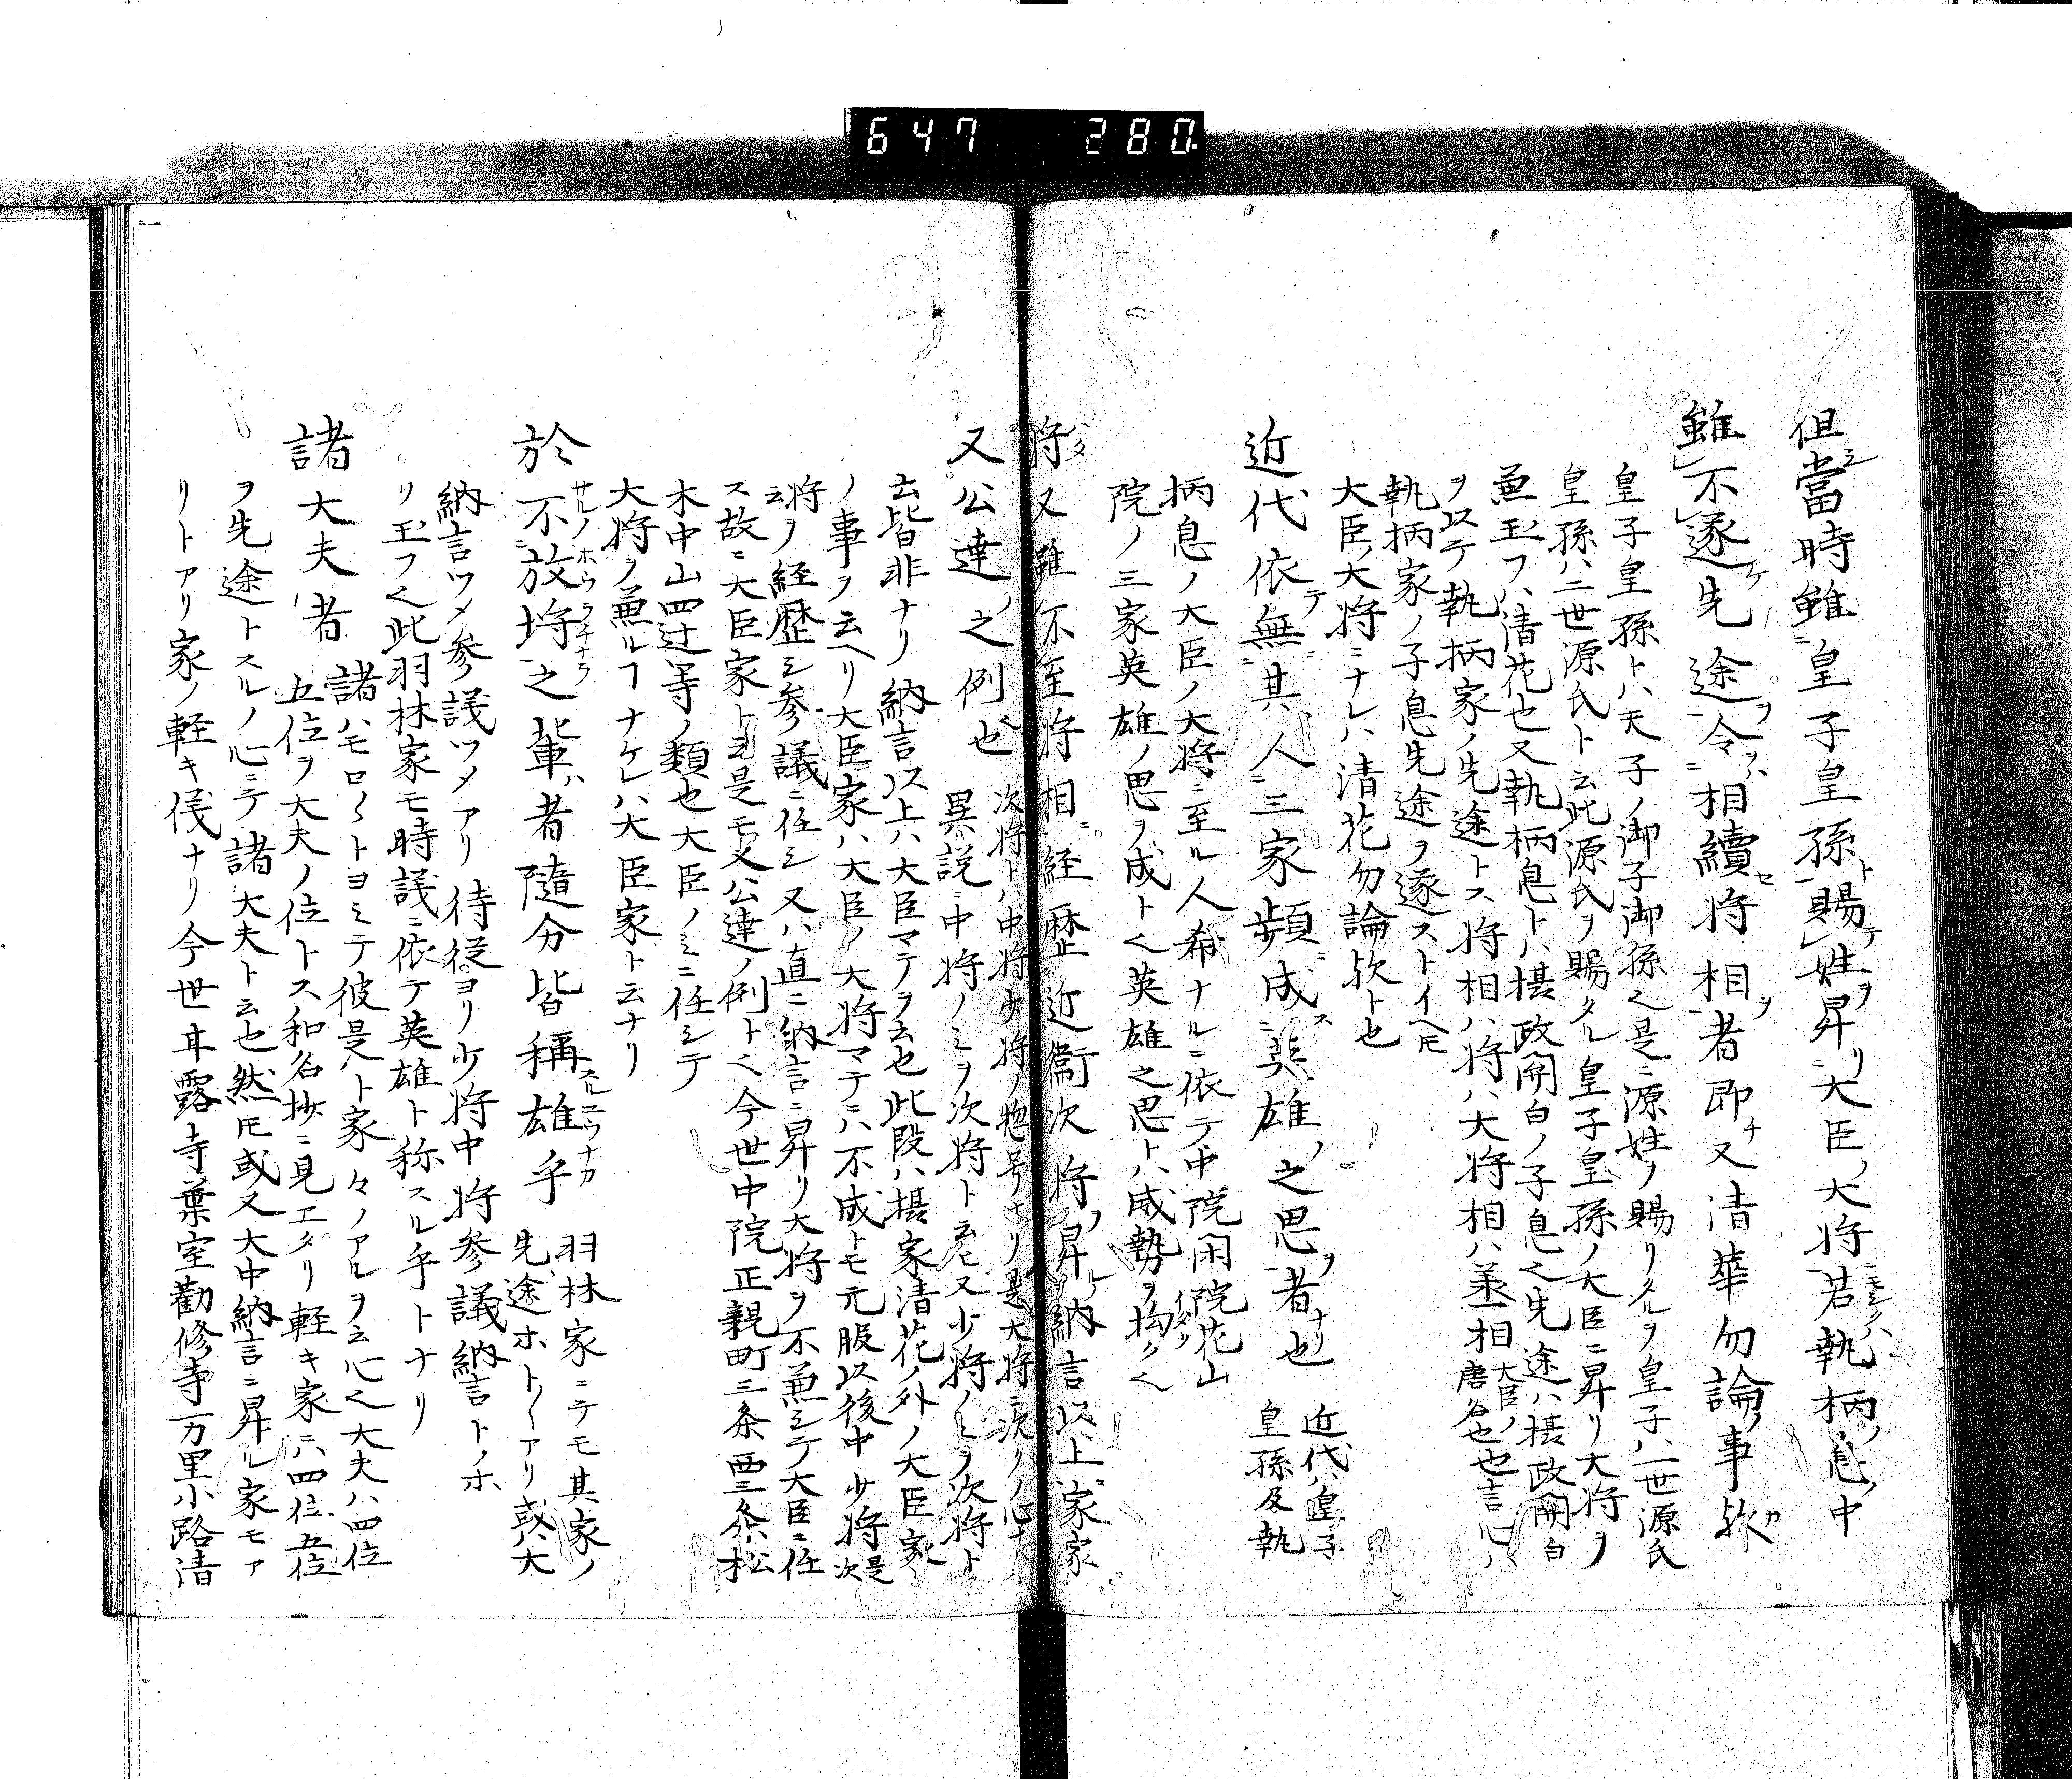 647 280
但當時雖皇子皇孫賜姓昇大臣大将若執柄息中
雖不遂先途令相續将相者即又清華勿論事歟
皇子皇孫トハ天子ノ御子御孫也是ニ源姓ヲ賜リタルヲ皇子ハ一世源氏
皇孫ハ二世源氏ト云此源氏ヲ賜タル皇子皇孫ノ大臣ニ昇リ大将ヲ
兼玉フハ清花也又執柄息トハ摂政関白ノ子息也先途ハ摂政関白
ヲ以テ執柄家ノ先途トス将相ハ将ハ大将相ハ丞相大臣ノ唐名也也言心ハ
執柄家ノ子息先途ヲ遂ストイヘ𪜈
大臣大将ニナレハ清花勿論歟ト也
近代依無其人三家頻成英雄之思者也 近代ハ皇子皇孫及執
柄息ノ大臣ノ大将ニ至ル人希ナルニ依テ中院閑院花山
院ノ三家英雄ノ思ヲ成ト也英雄之思トハ威勢ヲ拘ク也
将又雖不至将相経歴近衛次将昇納言以上家家
又公達之例也 次将トハ中将少将ノ惣号ナリ是大将ニ次クノ心ナリ
異説ニ中将ノミヲ次将ト云ヒ又少将ノミヲ次将ト
云皆非ナリ納言以上ハ大臣マテヲ云也此段ハ摂家清花ノ外ノ大臣家
ノ事ヲ云ヘリ大臣家ハ大臣ノ大将マテニハ不成トモ元服以後中少将是次
将ヲ云経歴シ参議ニ任シ又ハ直ニ納言ニ昇リ大将ヲ不兼シテ大臣ニ任
ス故ニ大臣家ト云是モ又公達ノ例ト也今世中院正親町三条西三条松
木中山四辻等ノ類也大臣ノミニ任シテ
大将ヲ兼ルヿナケレハ大臣家ト云ナリ
於不放埒之輩者隨分皆稱雄乎 羽林家ニテモ其家ノ
先途ホト〱アリ或ハ大
納言ツメ参議ツメアリ侍従ヨリ少将中将参議納言トノホ
リ玉フ也此羽林家モ時議ニ依テ英雄ト称スル乎トナリ
諸大夫者 諸ハモロ〱トヨミテ彼是ト家々ノアルヲ云心也大夫ハ四位
五位ヲ大夫ノ位トス和名抄ニ見エタリ軽キ家ニハ四位五位
ヲ先途トスルノ心ニテ諸大夫ト云也然𪜈或又大中納言ニ昇ル家モア
リトアリ家ノ軽キ儀ナリ今世甘露寺葉室勸修寺万里小路清